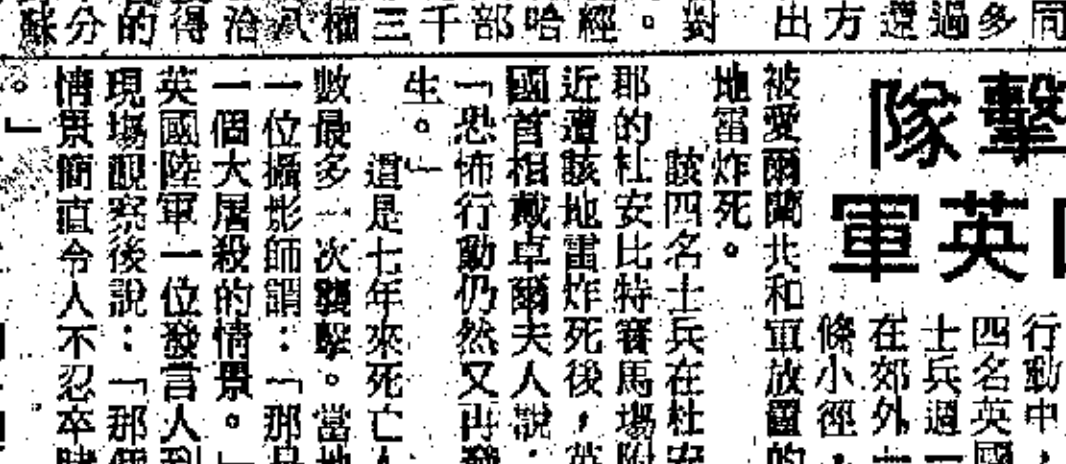 同多過還方出 對。經哈部千三權八治得的分蘇
擊隊
英軍
行動中,
四名英國
士兵週一
在郊外
條小徑,
被愛爾蘭共和軍放置的
地雷炸死。
該四名士兵在杜安
郡的杜安比特賽馬場附
近遭該地雷炸死後,英
國首相戴卓爾夫人說:
「恐怖行動仍然又再發
生。」
這是七年來死亡人
數最多一次襲擊。當地
一位攝影師謂:「那是
一個大屠殺的情景。」
英國陸軍一位發言人到
現場觀察後說:「那個
情景簡直令人不忍卒睹
。」